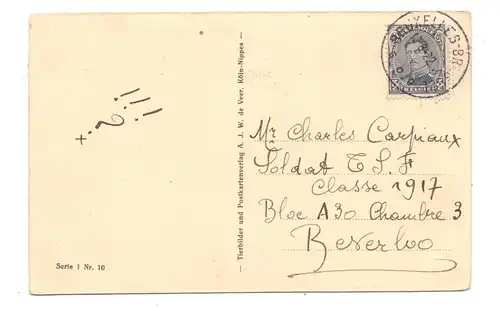 !!! ? +
Serie 1 Nr. 10
— Tierbilder und Postkartenverlag A. J. W. de Veer, Köln-Nippes —
BRUXELLES-BR
Mr Charles Carpiaux
Soldat T S F
Classe 1917
Bloc A30 Chambre 3
Beverloo